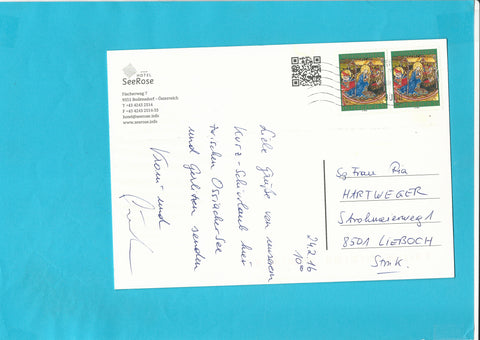 HOTEL
SeeRose
Fischerweg 7
9551 Bodensdorf - Österreich
T +43 4243 2514
F +43 4243 2514-25
hotel@seerose.info
www.seerose.info
24.2.16
10⁰⁰
Liebe Grüße von unserem
Kurz-Schiurlaub hier
zwischen Ossiachersee
und Gerlitzen senden
und
Sg. Frau Pia
HARTWEGER
Strohmaierweg 1
8501 LIEBOCH
Stmk.